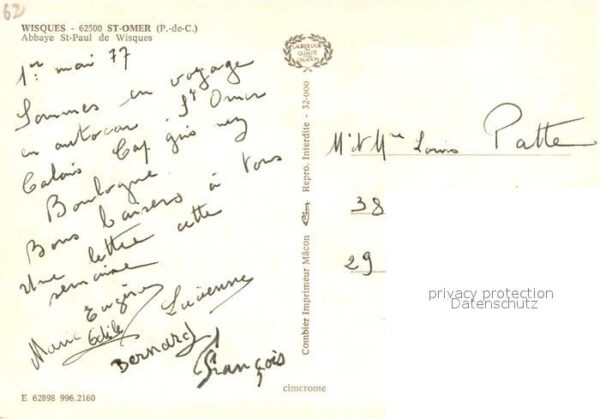 62
WISQUES - 62500 ST-OMER (P.-de-C.)
Abbaye St-Paul de Wisques
1er mai 77
Sommes en voyage
en autocar St Omer
Calais Cap gris nez
Boulogne
Bons baisers à tous
Une lettre cette
semaine
Eugène Lucienne
Marie Odile
Bernard
François
E 62898 996.2160
Combier Imprimeur Mâcon Cim Repro. Interdite - 32-000
cimcrome
Mr et Mme Louis Patte
38
29
privacy protection
Datenschutz